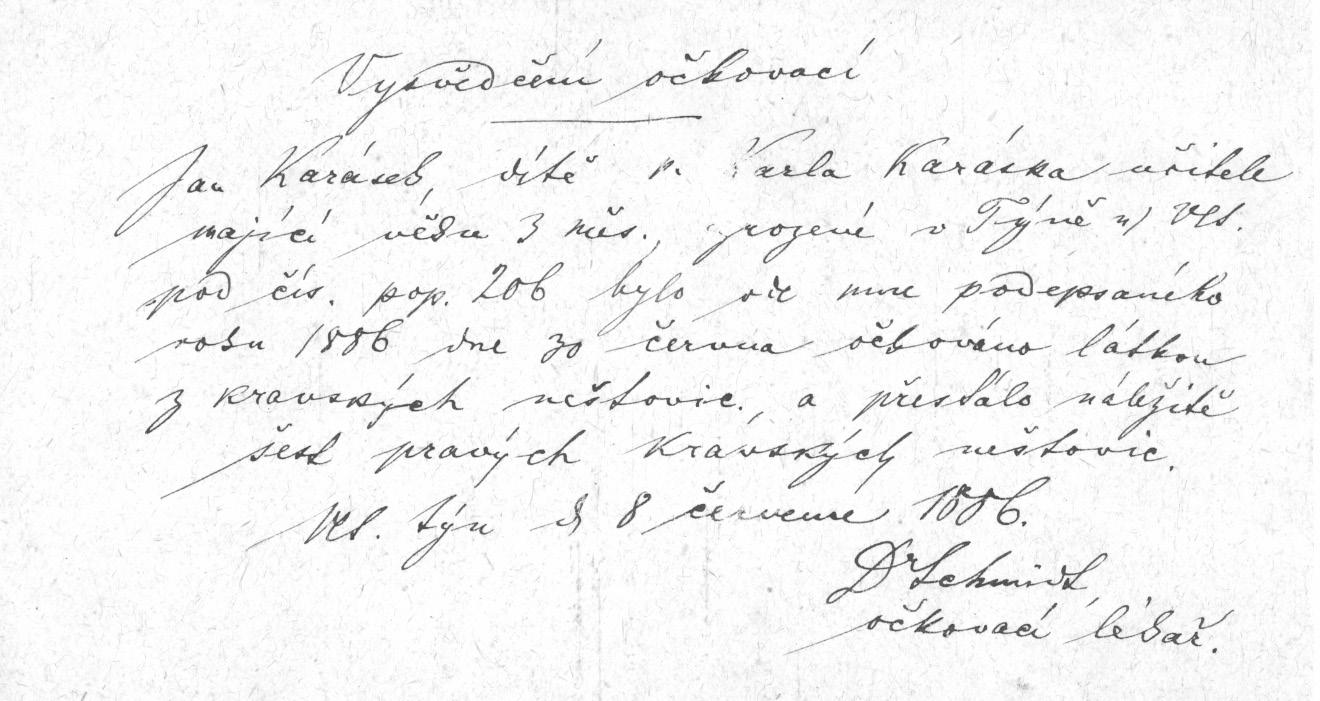 Vysvědčení očkovací
Jan Karásek, dítě p. Karla Karáska učitele
mající věku 3 měs., zrozené v Týně n/ Vlt.
pod čís. pop. 206 bylo ode mne podepsaného
roku 1886 dne 30 června očkováno látkou
z kravských neštovic., a přestálo náležitě
šest pravých kravských neštovic.
Vlt. Týn d 8 července 1886.
Dr Schmidt,
očkovací lékař.